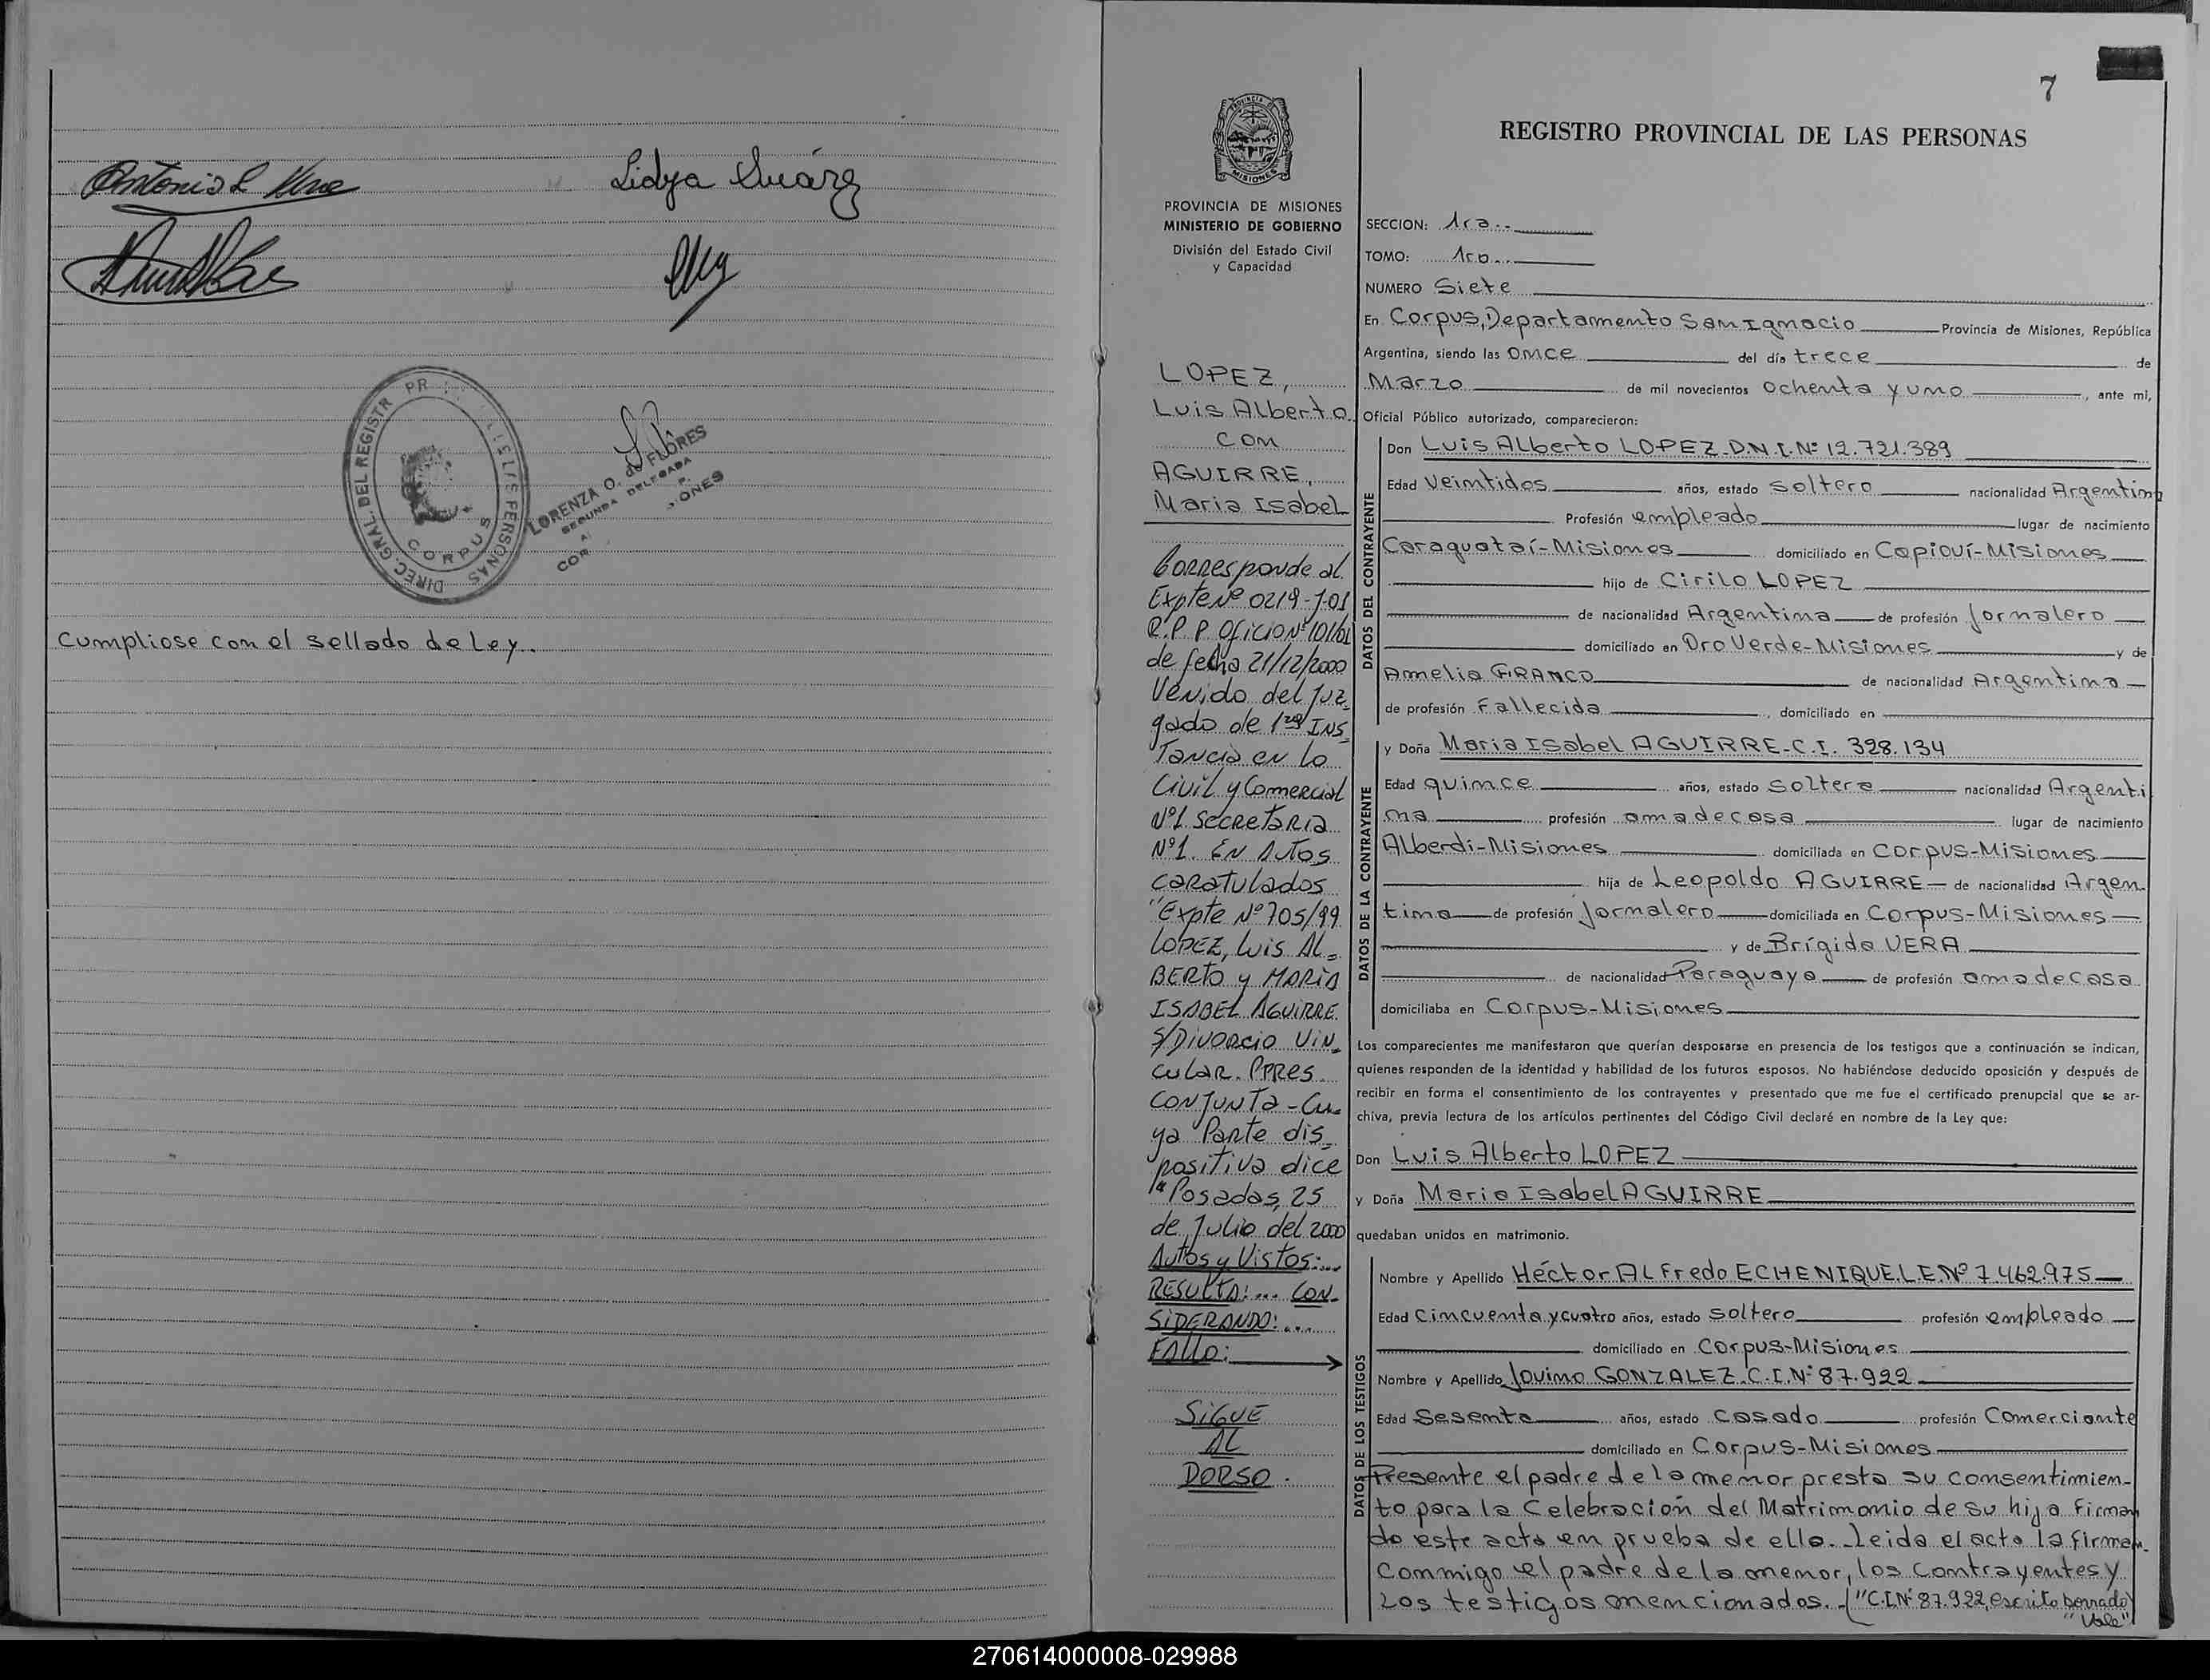 Antonio L
Lidya Suárez
DIREC. GRAL. DEL REGISTR PR PERSONAS
CORPUS
LORENZA O. de FLORES
SEGUNDA DELEGADA
COR
Cumpliose con el sellado de Ley.
7
REGISTRO PROVINCIAL DE LAS PERSONAS
PROVINCIA DE MISIONES
MINISTERIO DE GOBIERNO
División del Estado Civil
y Capacidad
LOPEZ,
Luis Alberto
con
AGUIRRE,
Maria Isabel
Corresponde al
Expte Nº 0219-J-01
R.P.P Oficio Nº 101/01
de fecha 21/12/2000
Venido del Juz-
gado de 1ra INS-
Tancia en lo
Civil y Comercial
Nº1. Secretaria
Nº1. EN Autos
caratulados
"Expte Nº 705/99
LOPEZ, Luis AL-
BERTO y MARIA
ISABEL AGUIRRE
S/Divorcio VIN-
cular. PPRes.
conjunta - Cu-
ya Parte dis-
positiva dice
"Posadas, 25
de Julio del 2000
Autos y Vistos:...
RESULTA:... CON-
SIDERANDO:...
FALLO:
SIGUE
AL
DORSO.
SECCION: 1ra..
TOMO: 1ro...
NUMERO Siete
En Corpus, Departamento San Ignacio Provincia de Misiones, República
Argentina, siendo las once del día trece de
Marzo de mil novecientos ochenta y uno, ante mí,
Oficial Público autorizado, comparecieron:
DATOS DEL CONTRAYENTE
Don Luis Alberto LOPEZ-D.N.I.Nº 12.721.389
Edad veintidos años, estado soltero nacionalidad Argentina
Profesión empleado lugar de nacimiento
Caraguataí-Misiones domiciliado en Capioví-Misiones
hijo de Cirilo LOPEZ
de nacionalidad Argentina de profesión Jornalero
domiciliado en Oro Verde-Misiones y de
Amelia FRANCO de nacionalidad Argentina
de profesión Fallecida, domiciliado en
DATOS DE LA CONTRAYENTE
y Doña Maria Isabel AGUIRRE-C.I. 328.134
Edad quince años, estado soltera nacionalidad Argenti
na profesión ama de casa lugar de nacimiento
Alberdi-Misiones domiciliada en Corpus-Misiones
hija de Leopoldo AGUIRRE de nacionalidad Argen-
tina de profesión Jornalero domiciliada en Corpus-Misiones
y de Brígida VERA
de nacionalidad Paraguaya de profesión ama de casa
domiciliaba en Corpus-Misiones
Los comparecientes me manifestaron que querían desposarse en presencia de los testigos que a continuación se indican,
quienes responden de la identidad y habilidad de los futuros esposos. No habiéndose deducido oposición y después de
recibir en forma el consentimiento de los contrayentes y presentado que me fue el certificado prenupcial que se ar-
chiva, previa lectura de los artículos pertinentes del Código Civil declaré en nombre de la Ley que:
Don Luis Alberto LOPEZ
y Doña Maria Isabel AGUIRRE
quedaban unidos en matrimonio.
DATOS DE LOS TESTIGOS
Nombre y Apellido Héctor Alfredo ECHENIQUE.L.E.Nº 7.462.975
Edad cincuenta y cuatro años, estado soltero profesión empleado
domiciliado en Corpus-Misiones
Nombre y Apellido Jovino GONZALEZ.C.I.Nº 87.922
Edad Sesenta años, estado casado profesión Comerciante
domiciliado en Corpus-Misiones
Presente el padre de la menor presta su consentimien-
to para la Celebración del Matrimonio de su hija firman
do este acta en prueba de ello. Leida el acta la firman
conmigo el padre de la menor, los contrayentes y
los testigos mencionados.-("C.I.Nº 87.922, escrito borrado
"Vale"
270614000008-029988